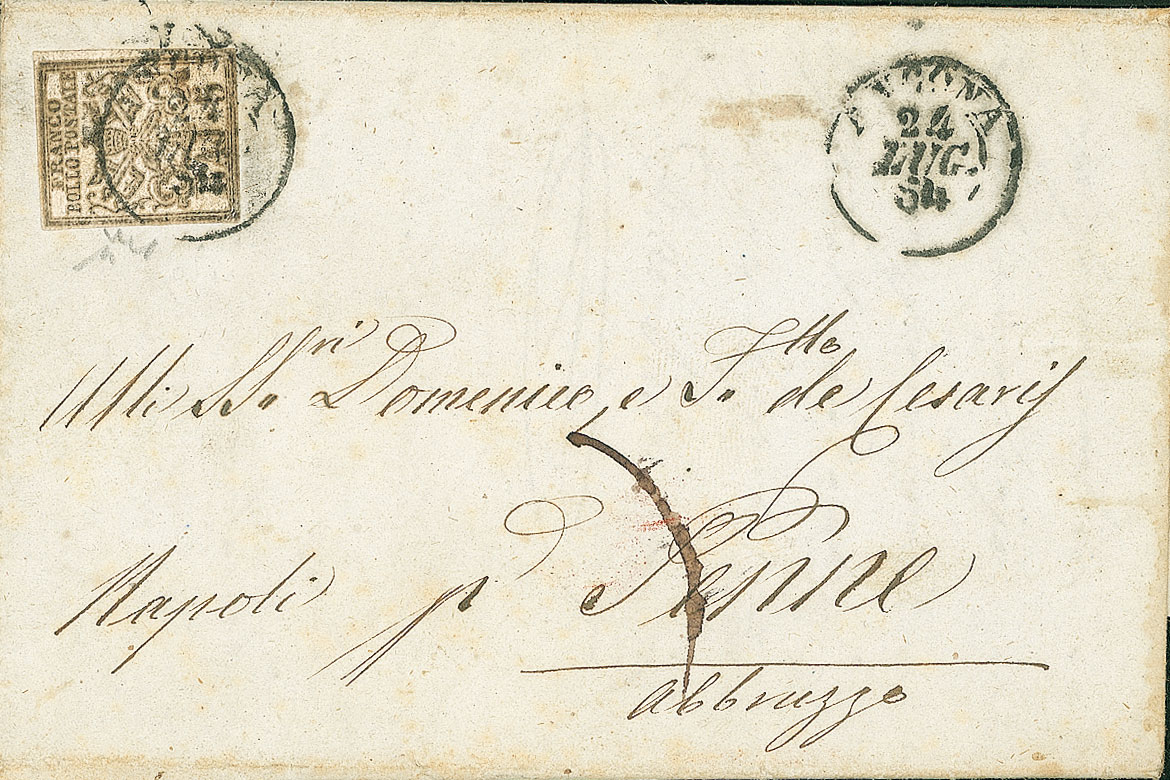 FRANCO
BOLLO POSTALE
BAJ 5
ANCONA
24
LUG.
54
Alli SSri Domenico e Flło de Cesaris
Napoli p Penne
abbruzzo